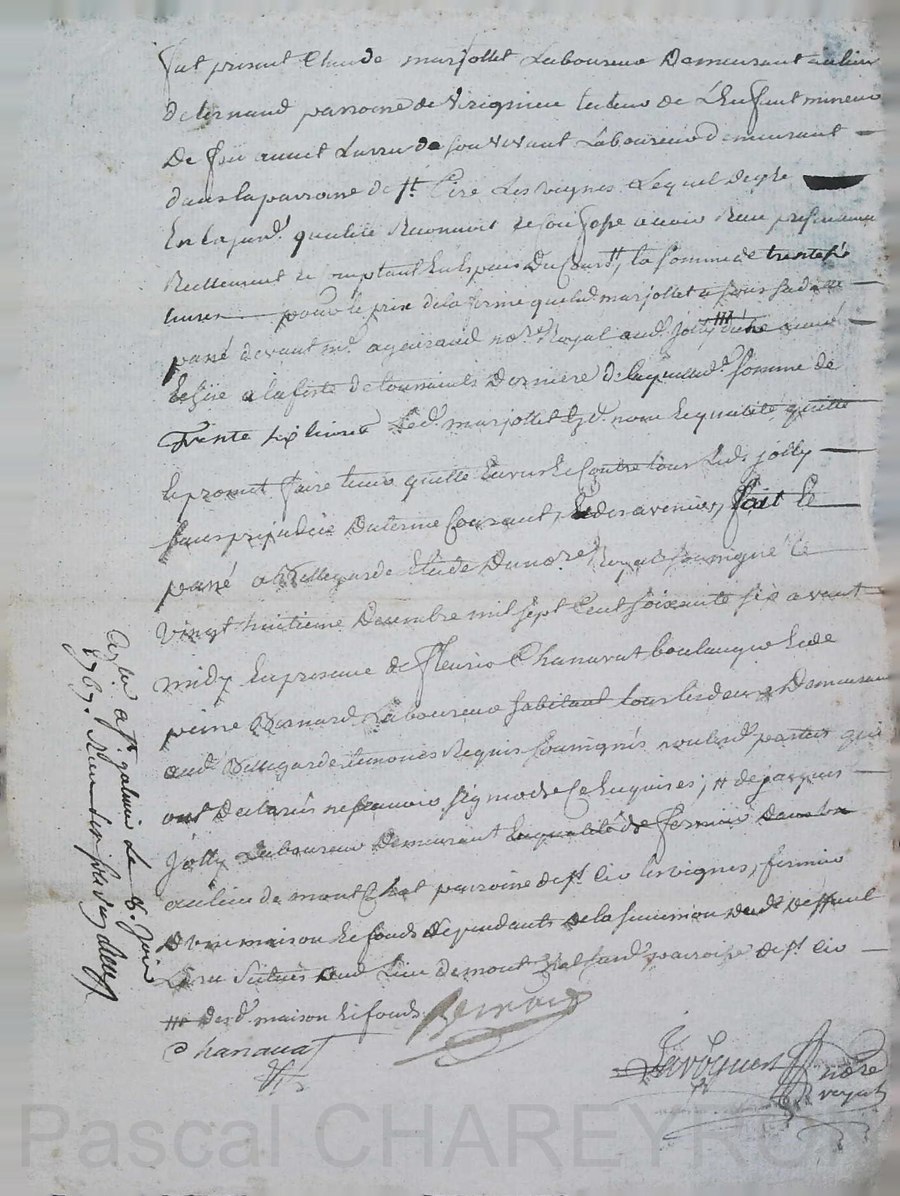 fut present Claude marjollet Laboureur Demeurant au lieu
de parroisse de virignieu tuteur de L'Enfant mineur
De Laboureur demeurant
dans la parroisse de st. Cire Les vignes Lequel De gré
En lad. qualité Reconnoit avoir Reçu
Reellement et comptant En Espèces Du Cours, la somme de trente six
livres pour le prix de la ferme que led. marjollet a passé
passé devant me. nore. Royal aud. jolly
a la feste de toussaints Derniere de laquelle d. somme de
Trente six livres Led. marjollet Esd. nom et qualité quitte
et promet faire tenir quitte Envers et Contre tous Led. jolly
sans prejudice Du terme Courant, Et des avenir, fait et
passé a Bellegarde Etude Du nore. Royal soussigné le
vingt huitieme Decembre mil sept Cent soixante six avant
midy En presence de fleurie Chanavat boulanger et de
Bernard Laboureur habitant tous les deux Demeurant
aud. Bellegarde temoins Requis soussignés non led. parties qui
ont Declarés ne sçavoir signer de Ce Enquises; # de jacques
jolly Laboureur Demeurant En qualité de fermier
au lieu de montchat parroisse de st. Cir les vignes, fermier
D'une maison et fonds dependants de la succession dud. Deffunt
situés aud. Lieu de mont chat susd. parroisse de st. Cir
## desd. maison et fonds
Chanavat
Bernard
nore
royal
a st. galmier Le 8. 
1767. Reçu
Pascal CHAREYRON